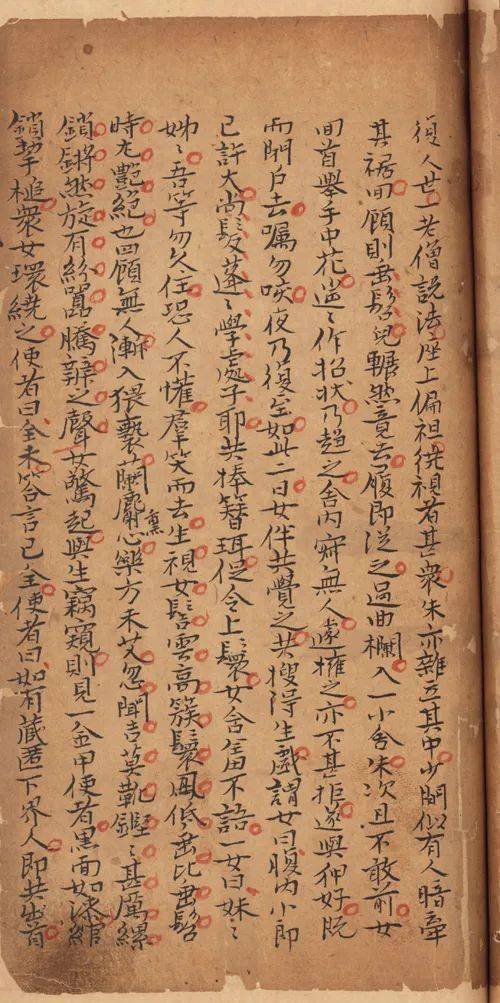 復人世一老僧說法座上偏袒繞視者甚衆朱亦雜立其中少間似有人暗牽
其裾回顧則垂髫兒囅然竟去履即從之過曲欄入一小舍朱次且不敢前女
回首舉手中花遥〻作招狀乃趨之舍內寂無人遽擁之亦不甚拒遂與狎好既
而閉戶去囑勿咳夜乃復至如此二日女伴共覺之共搜得生戲謂女曰腹內小郎
已許大尚髮蓬〻學處子耶共捧簪珥促令上鬟女含羞不語一女曰妹〻
姊〻吾等勿久住恐人不懽羣笑而去生視女髻雲高簇鬟鳳低垂比垂髫
時尤艷絕也四顧無人漸入猥褻蘭麝熏心樂方未艾忽聞吉莫靴鏗〻甚厲縲
鎖鏘然旋有紛囂騰辨之聲女驚起與生竊窺則見一金甲使者黑面如漆綰
鎖挈槌衆女環繞之使者曰全未答言已全使者曰如有藏匿下界人即共出首